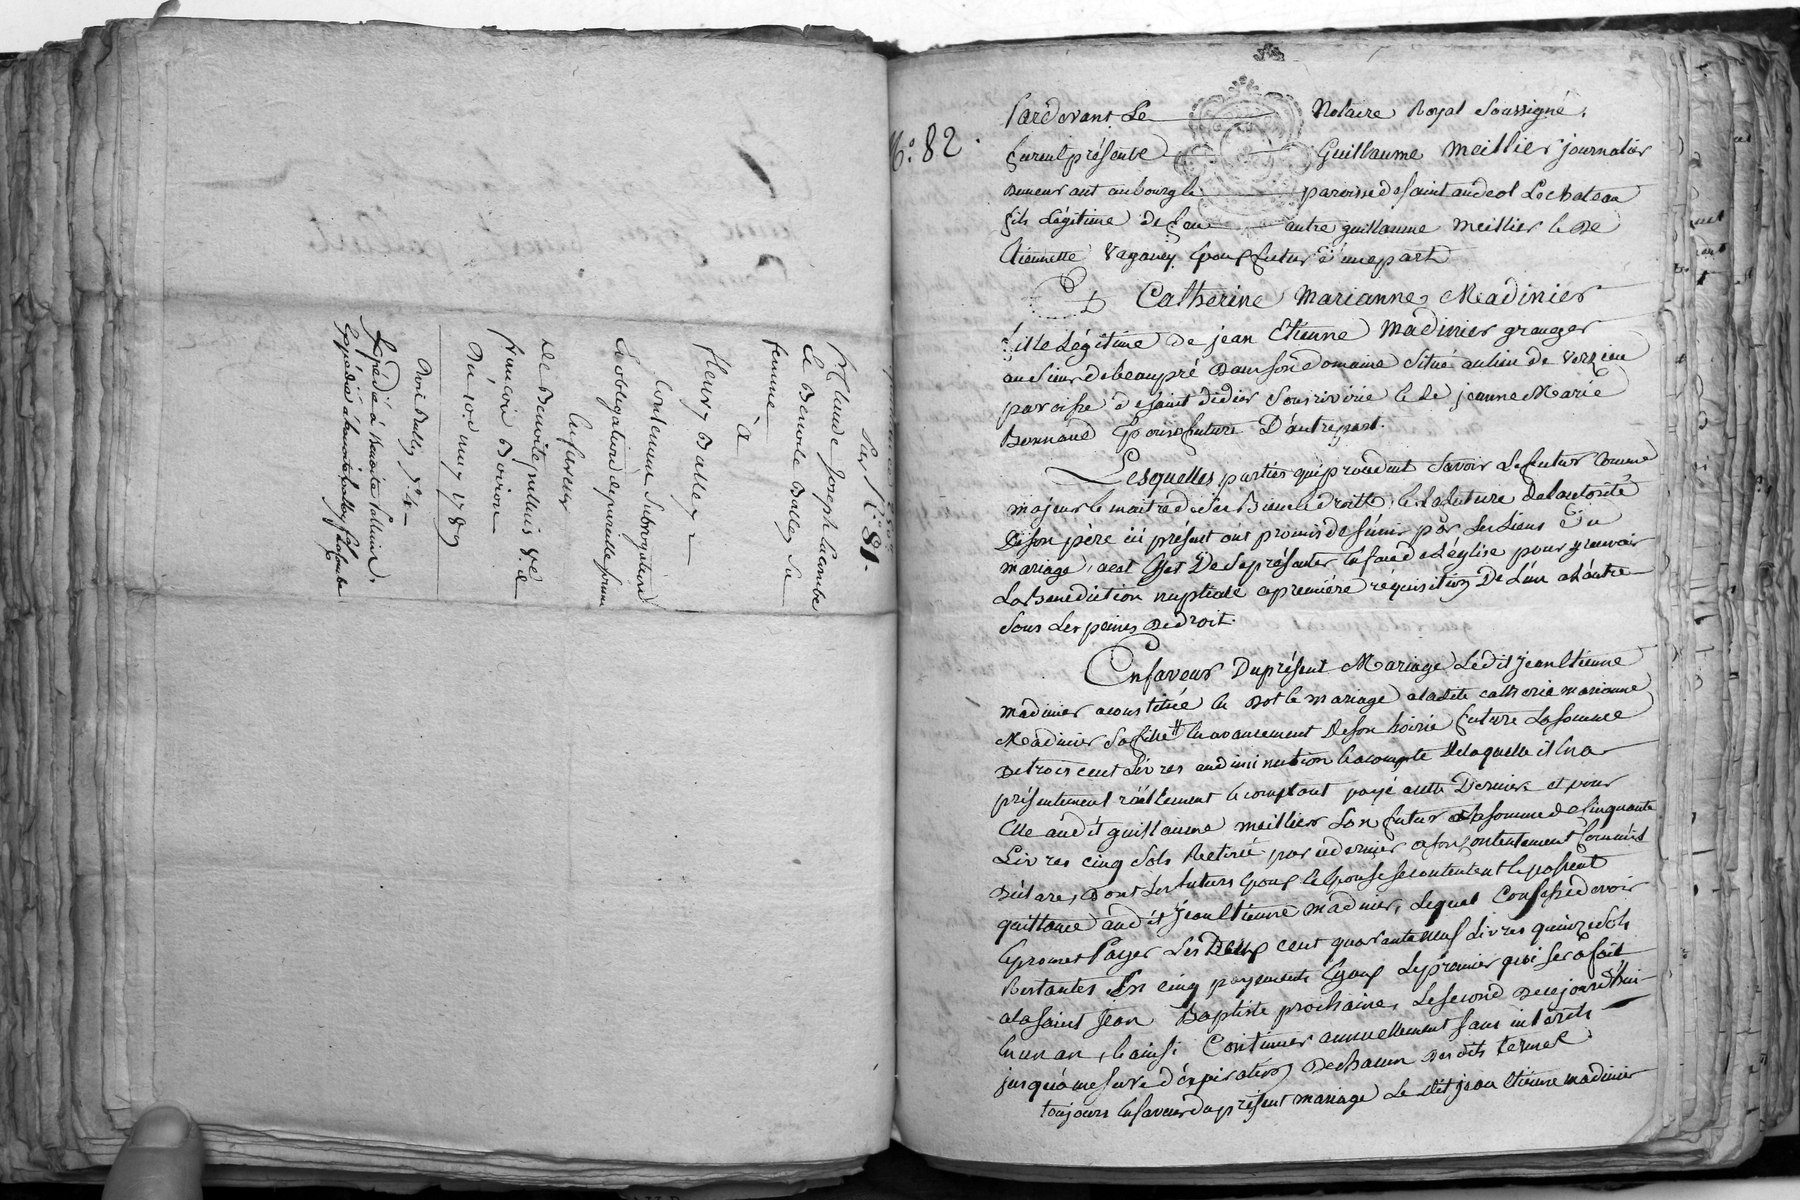 N.º 81.
Claude Joseph Lacombe
Et Benoite Balley sa
femme
à
Fleury Balley
Contenant subrogation
En faveur
De Benoite palluis v.e de
françois Boiron
Du 10e may 1789
N.º 82.
Pardevant Le Notaire Royal Soussigné,
furent présents Guillaume Meillier journalier
Demeurant au bourg & paroisse de saint andeol Le chateau
fils Légitime de feu autre guillaume Meillier & de
Etiennette Vaganey Epoux futur d'une part
Et Catherine Marianne Madinier
fille Légitime de jean Etienne Madinier granger
au sieur de beaupré Dans son domaine situé au lieu de Verzieu
paroisse de saint didier sous riverie & de jeanne Marie
Bonnand Epouse future D'autre part.
Lesquelles parties qui procedent savoir Le futur comme
majeur & maitre de ses Biens & droits, & la future De l'autorité
De son père ici présent ont promis de s'unir par les Liens du
mariage, à cet effet De se présenter en face de L'église pour y recevoir
La Benediction nuptiale a premiére réquisition De L'un a L'autre
sous les peines De droit.
En faveur Du présent Mariage Ledit jean Etienne
Madinier a constitué en Dot & mariage a ladite catherine marianne
Madinier sa fille # En avancement De son hoirie future La somme
De trois cent Livres en diminution & acompte De laquelle il en a
présentement réellement & comptant payé a cette Derniere et pour
Elle audit guillaume meillier son futur La somme de cinquante
Livres cinq sols Retirée par ce dernier a son contentement comme il
Déclare, Dont Les futurs Epoux & Epouse se contentent & passent
quittance audit jean Etienne Madinier, Lequel confesse devoir
& promet Payer Les Deux cent quarante neuf Livres quinze sols
Restantes En cinq payements Egaux Le premier qui sera fait
a la saint Jean Baptiste prochaine, Le second De ce jourd'hui
En un an, & ainsi Continuer annuellement sans intérêts
jusqu'a mesure d'expiration De chacun des dits termes
toujours en faveur du présent mariage Le dit jean Etienne madinier